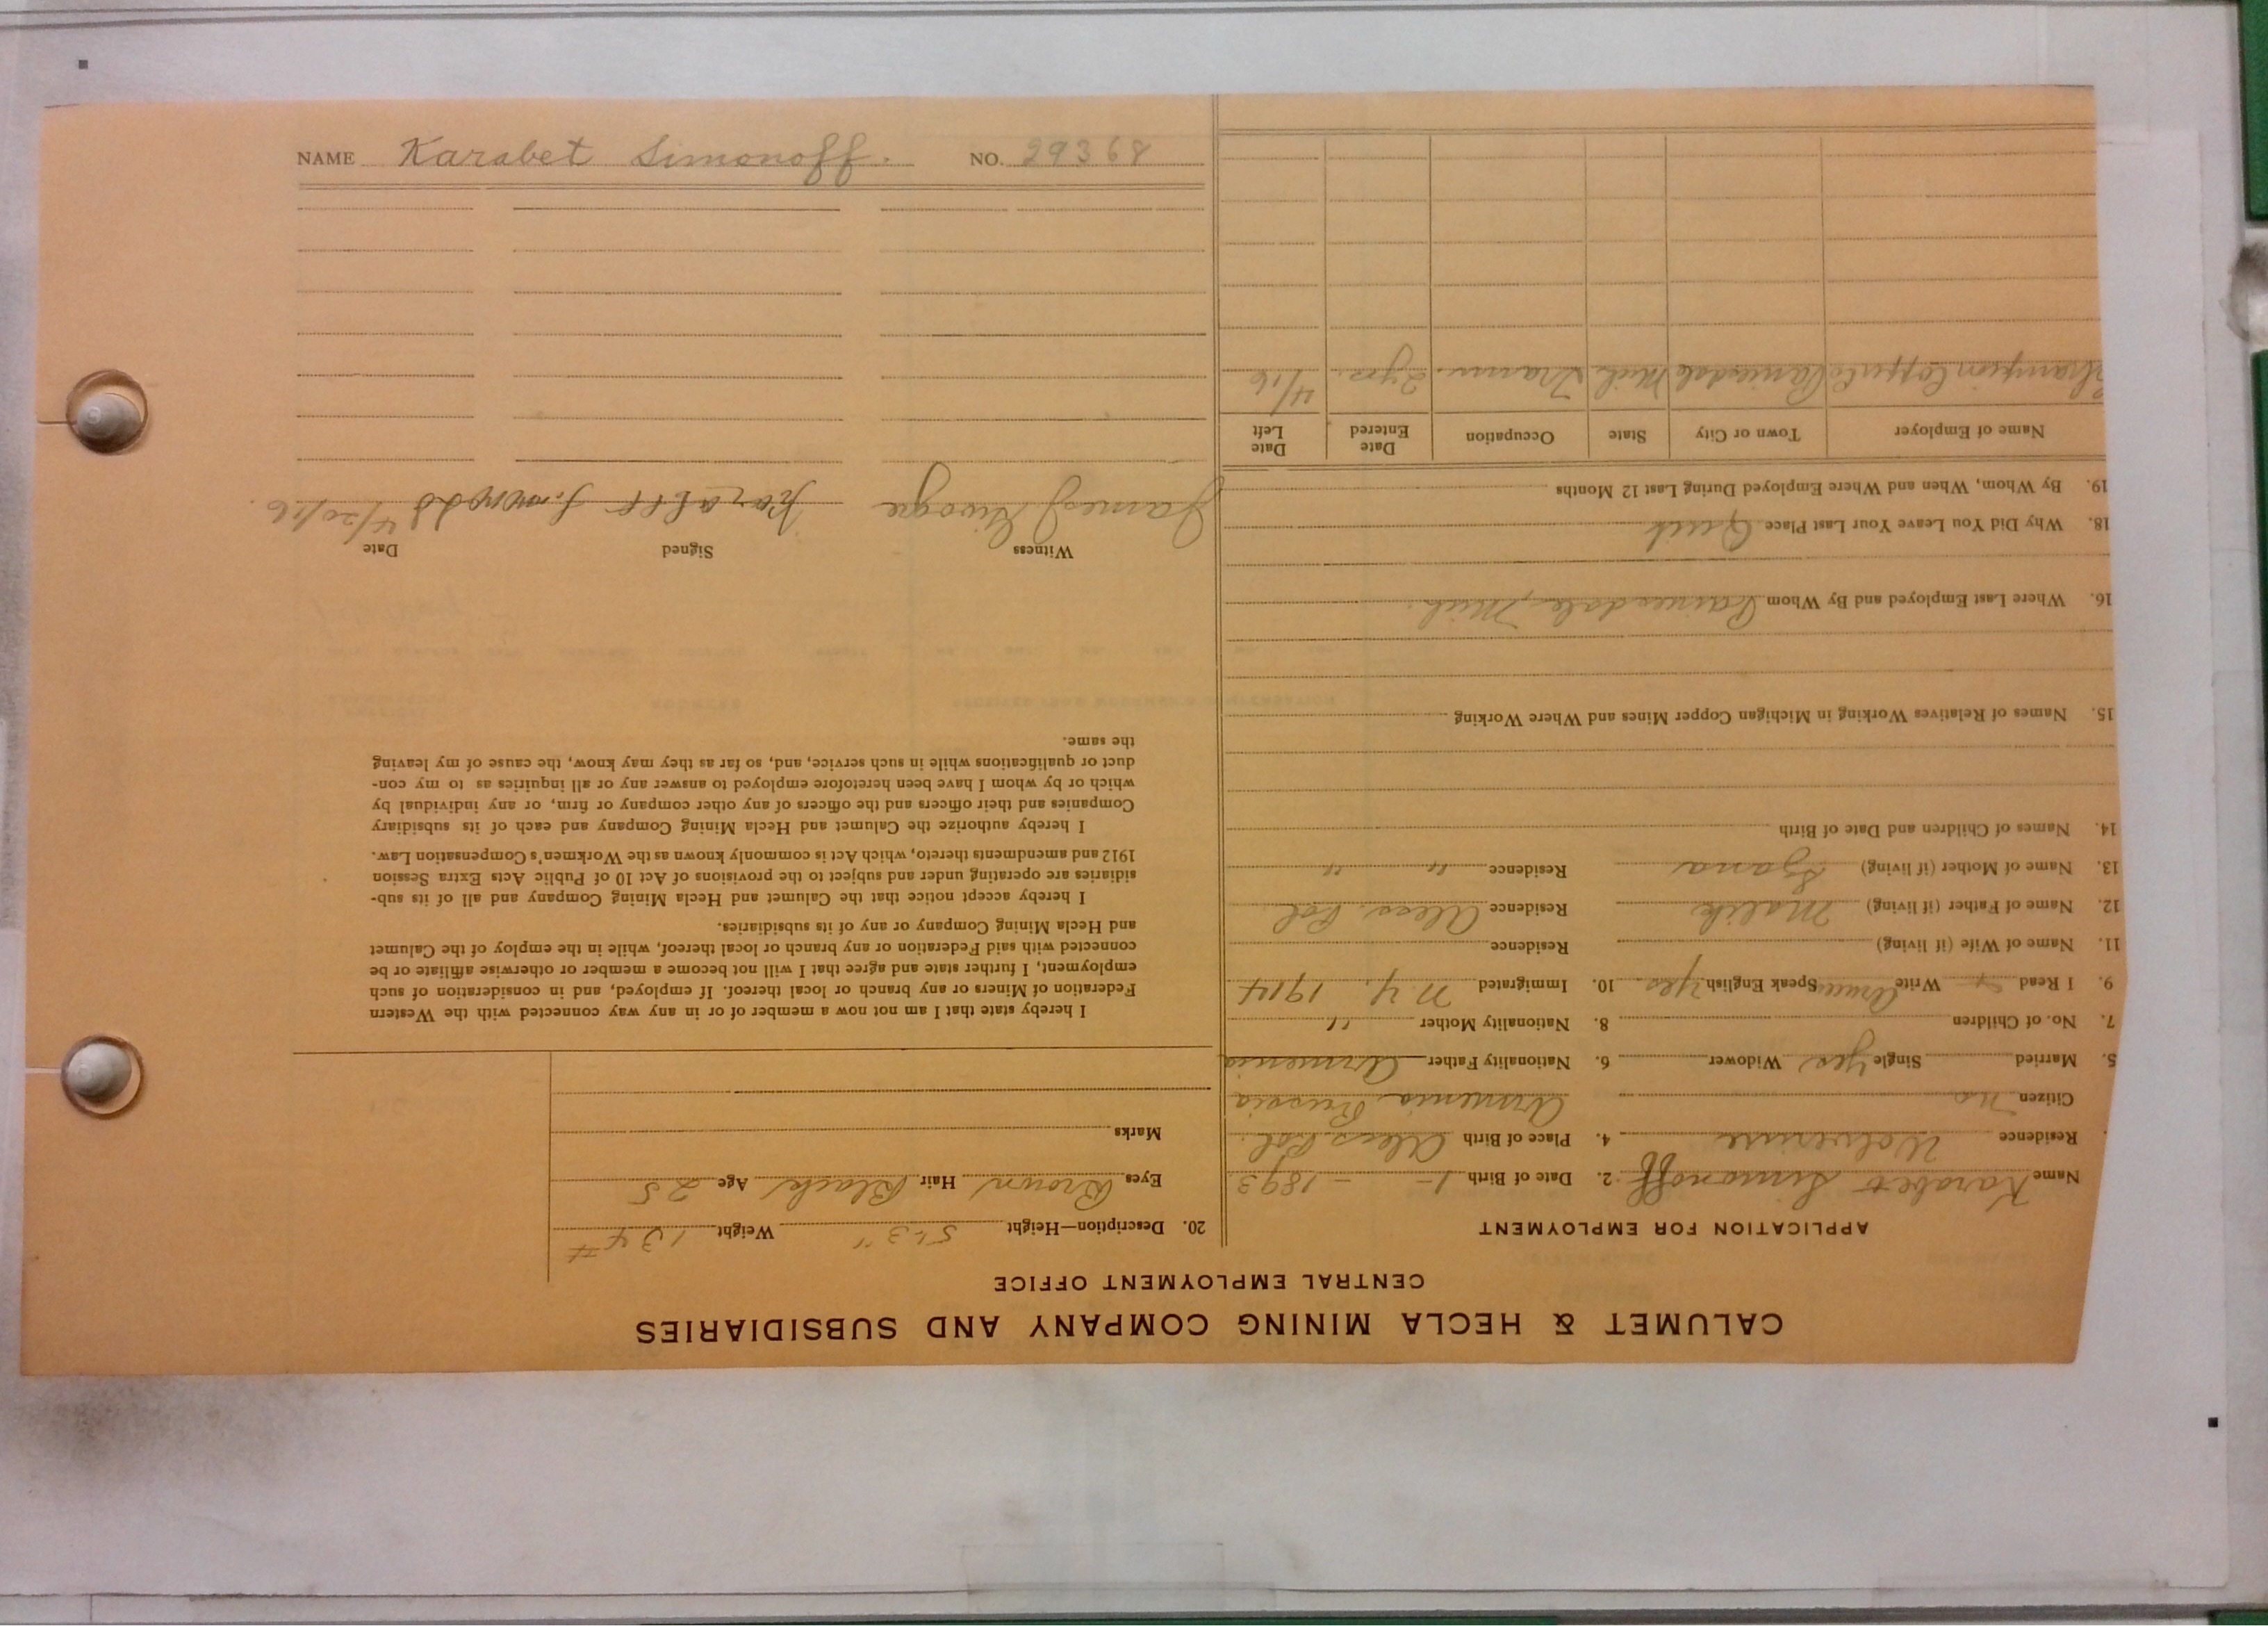 CALUMET & HECLA MINING COMPANY AND SUBSIDIARIES
CENTRAL EMPLOYMENT OFFICE
APPLICATION FOR EMPLOYMENT
Name Karabet Simonoff 2. Date of Birth 1 - - 1893
Residence Wolverine 4. Place of Birth Alecs Pol.
Citizen no Armenia Russia
5. Married Single Yes Widower 6. Nationality Father Armenia
7. No. of Children 8. Nationality Mother "
9. I Read Write Speak English Yes. 10. Immigrated N.Y. 1914
11. Name of Wife (if living) Residence
12. Name of Father (if living) Malik Residence Alecs. Pol
13. Name of Mother (if living) Residence " "
14. Names of Children and Date of Birth
15. Names of Relatives Working in Michigan Copper Mines and Where Working
16. Where Last Employed and By Whom Painesdale, Mich.
18. Why Did You Leave Your Last Place Quit
19. By Whom, When and Where Employed During Last 12 Months
Name of Employer Town or City State Occupation Date Entered Date Left
Champion Copper Co Painesdale Mich. Tram. 2 yrs. 4/16
20. Description—Height 5'-3" Weight 134 #
Eyes Brown Hair Black Age 25
Marks
I hereby state that I am not now a member of or in any way connected with the Western
Federation of Miners or any branch or local thereof. If employed, and in consideration of such
employment, I further state and agree that I will not become a member or otherwise affiliate or be
connected with said Federation or any branch or local thereof, while in the employ of the Calumet
and Hecla Mining Company or any of its subsidiaries.
I hereby accept notice that the Calumet and Hecla Mining Company and all of its sub-
sidiaries are operating under and subject to the provisions of Act 10 of Public Acts Extra Session
1912 and amendments thereto, which Act is commonly known as the Workmen's Compensation Law.
I hereby authorize the Calumet and Hecla Mining Company and each of its subsidiary
Companies and their officers and the officers of any other company or firm, or any individual by
which or by whom I have been heretofore employed to answer any or all inquiries as to my con-
duct or qualifications while in such service, and, so far as they may know, the cause of my leaving
the same.
Witness Signed Date
James 4/20/16
NAME Karabet Simonoff. NO. 29368